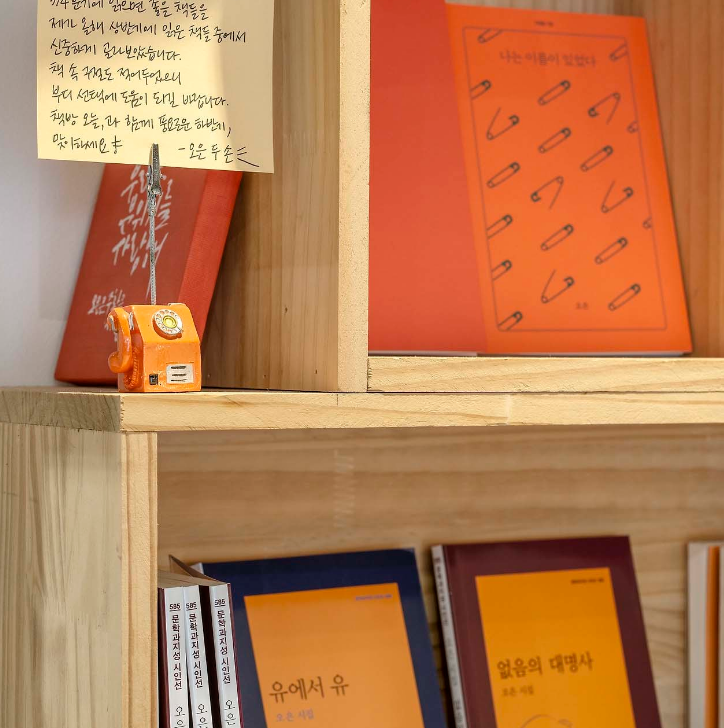 3/4 분기에 읽으면 좋을 책들을
제가 올해 상반기에 읽은 책들 중에서
신중하게 골라보았습니다.
책 속 구절도 적어두었으니
부디 선택에 도움이 되길 바랍니다.
책방 오늘,과 함께 풍요로운 하반기,
맞이하세요
-오은 두 손
나는 이름이 있었다
오은
585
문학과지성 시인선
오
585
문학과지성 시인선
오
585
문학과지성 시인선
오
유에서 유
오은 시집
없음의 대명사
오은 시집